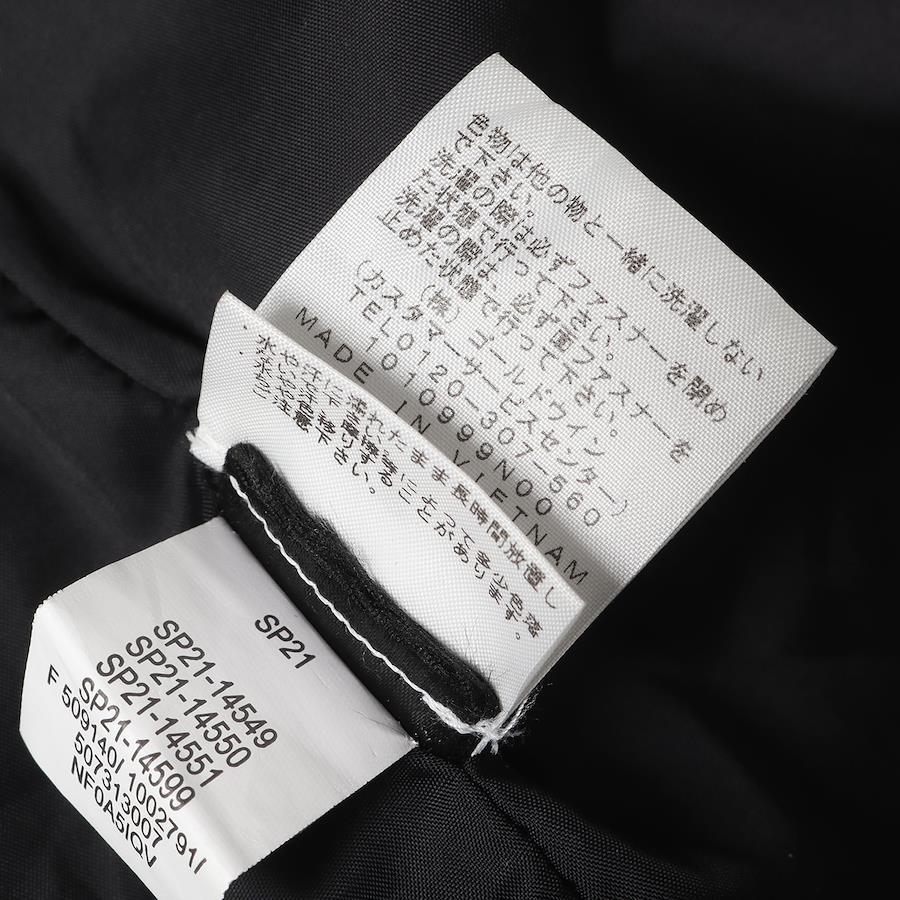 色物は他の物と一緒に洗濯しない
で下さい。
洗濯の際は必ずファスナーを閉め
た状態で行って下さい。
洗濯の際は、必ず面ファスナーを
止めた状態で行って下さい。
(株)ゴールドウイン
(カスタマーサービスセンター)
TEL0120-307-560
1010999N00
MADE IN VIETNAM
水や汗に濡れたまま長時間放置し
多少色落
ちや色移りすることがあります。
ご注意下さい。
SP21
SP21-14549
SP21-14550
SP21-14551
SP21-14599
F 509140/ 1002791/
507313007
NF0A5IQV